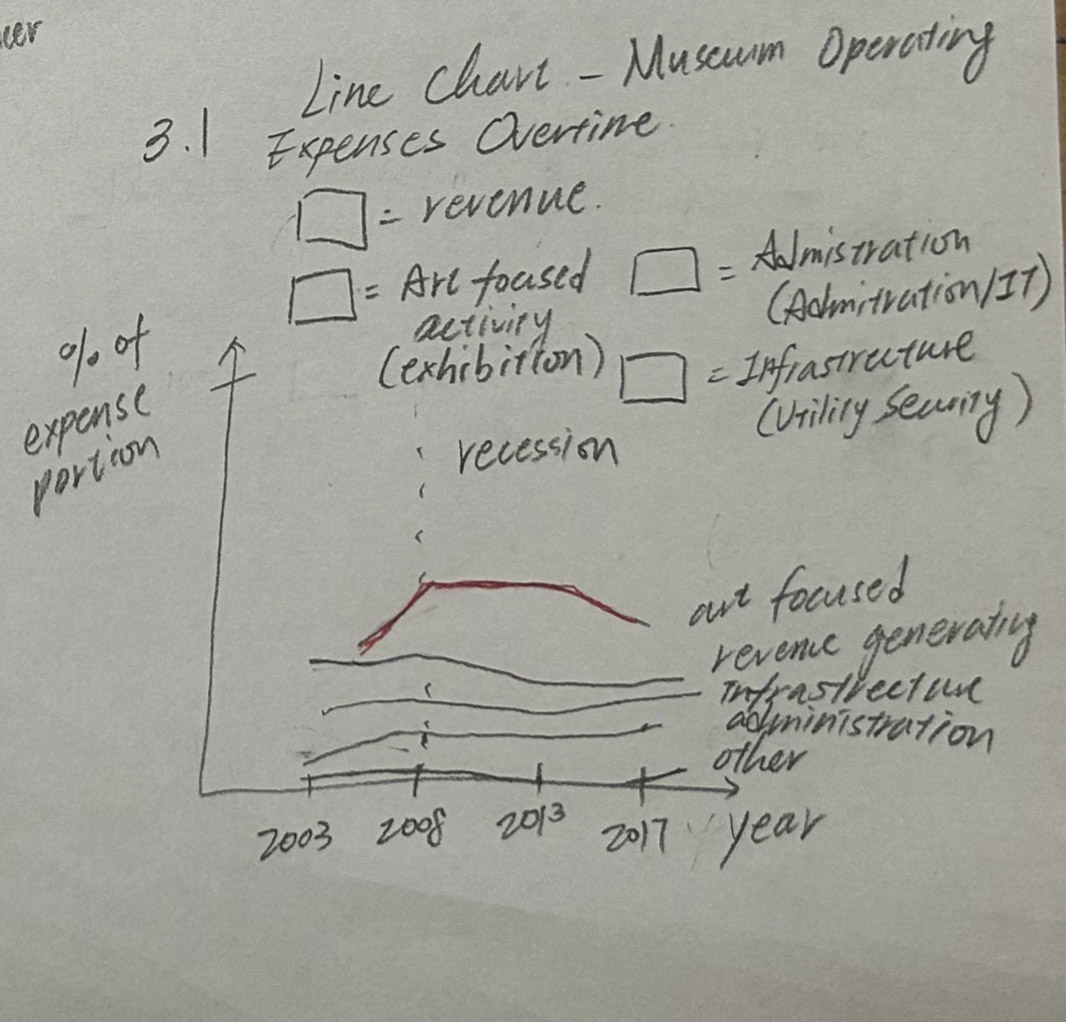 Line Chart - Museum Operating
3.1 Expenses Overtime
= revenue.
= Art focused
activity
(exhibition)
= Admistration
(Admitration/IT)
= Infrastructure
(Utility Security)
% of
expense
portion
recession
art focused
revenue generating
infrastructure
administration
other
2003 2008 2013 2017 year